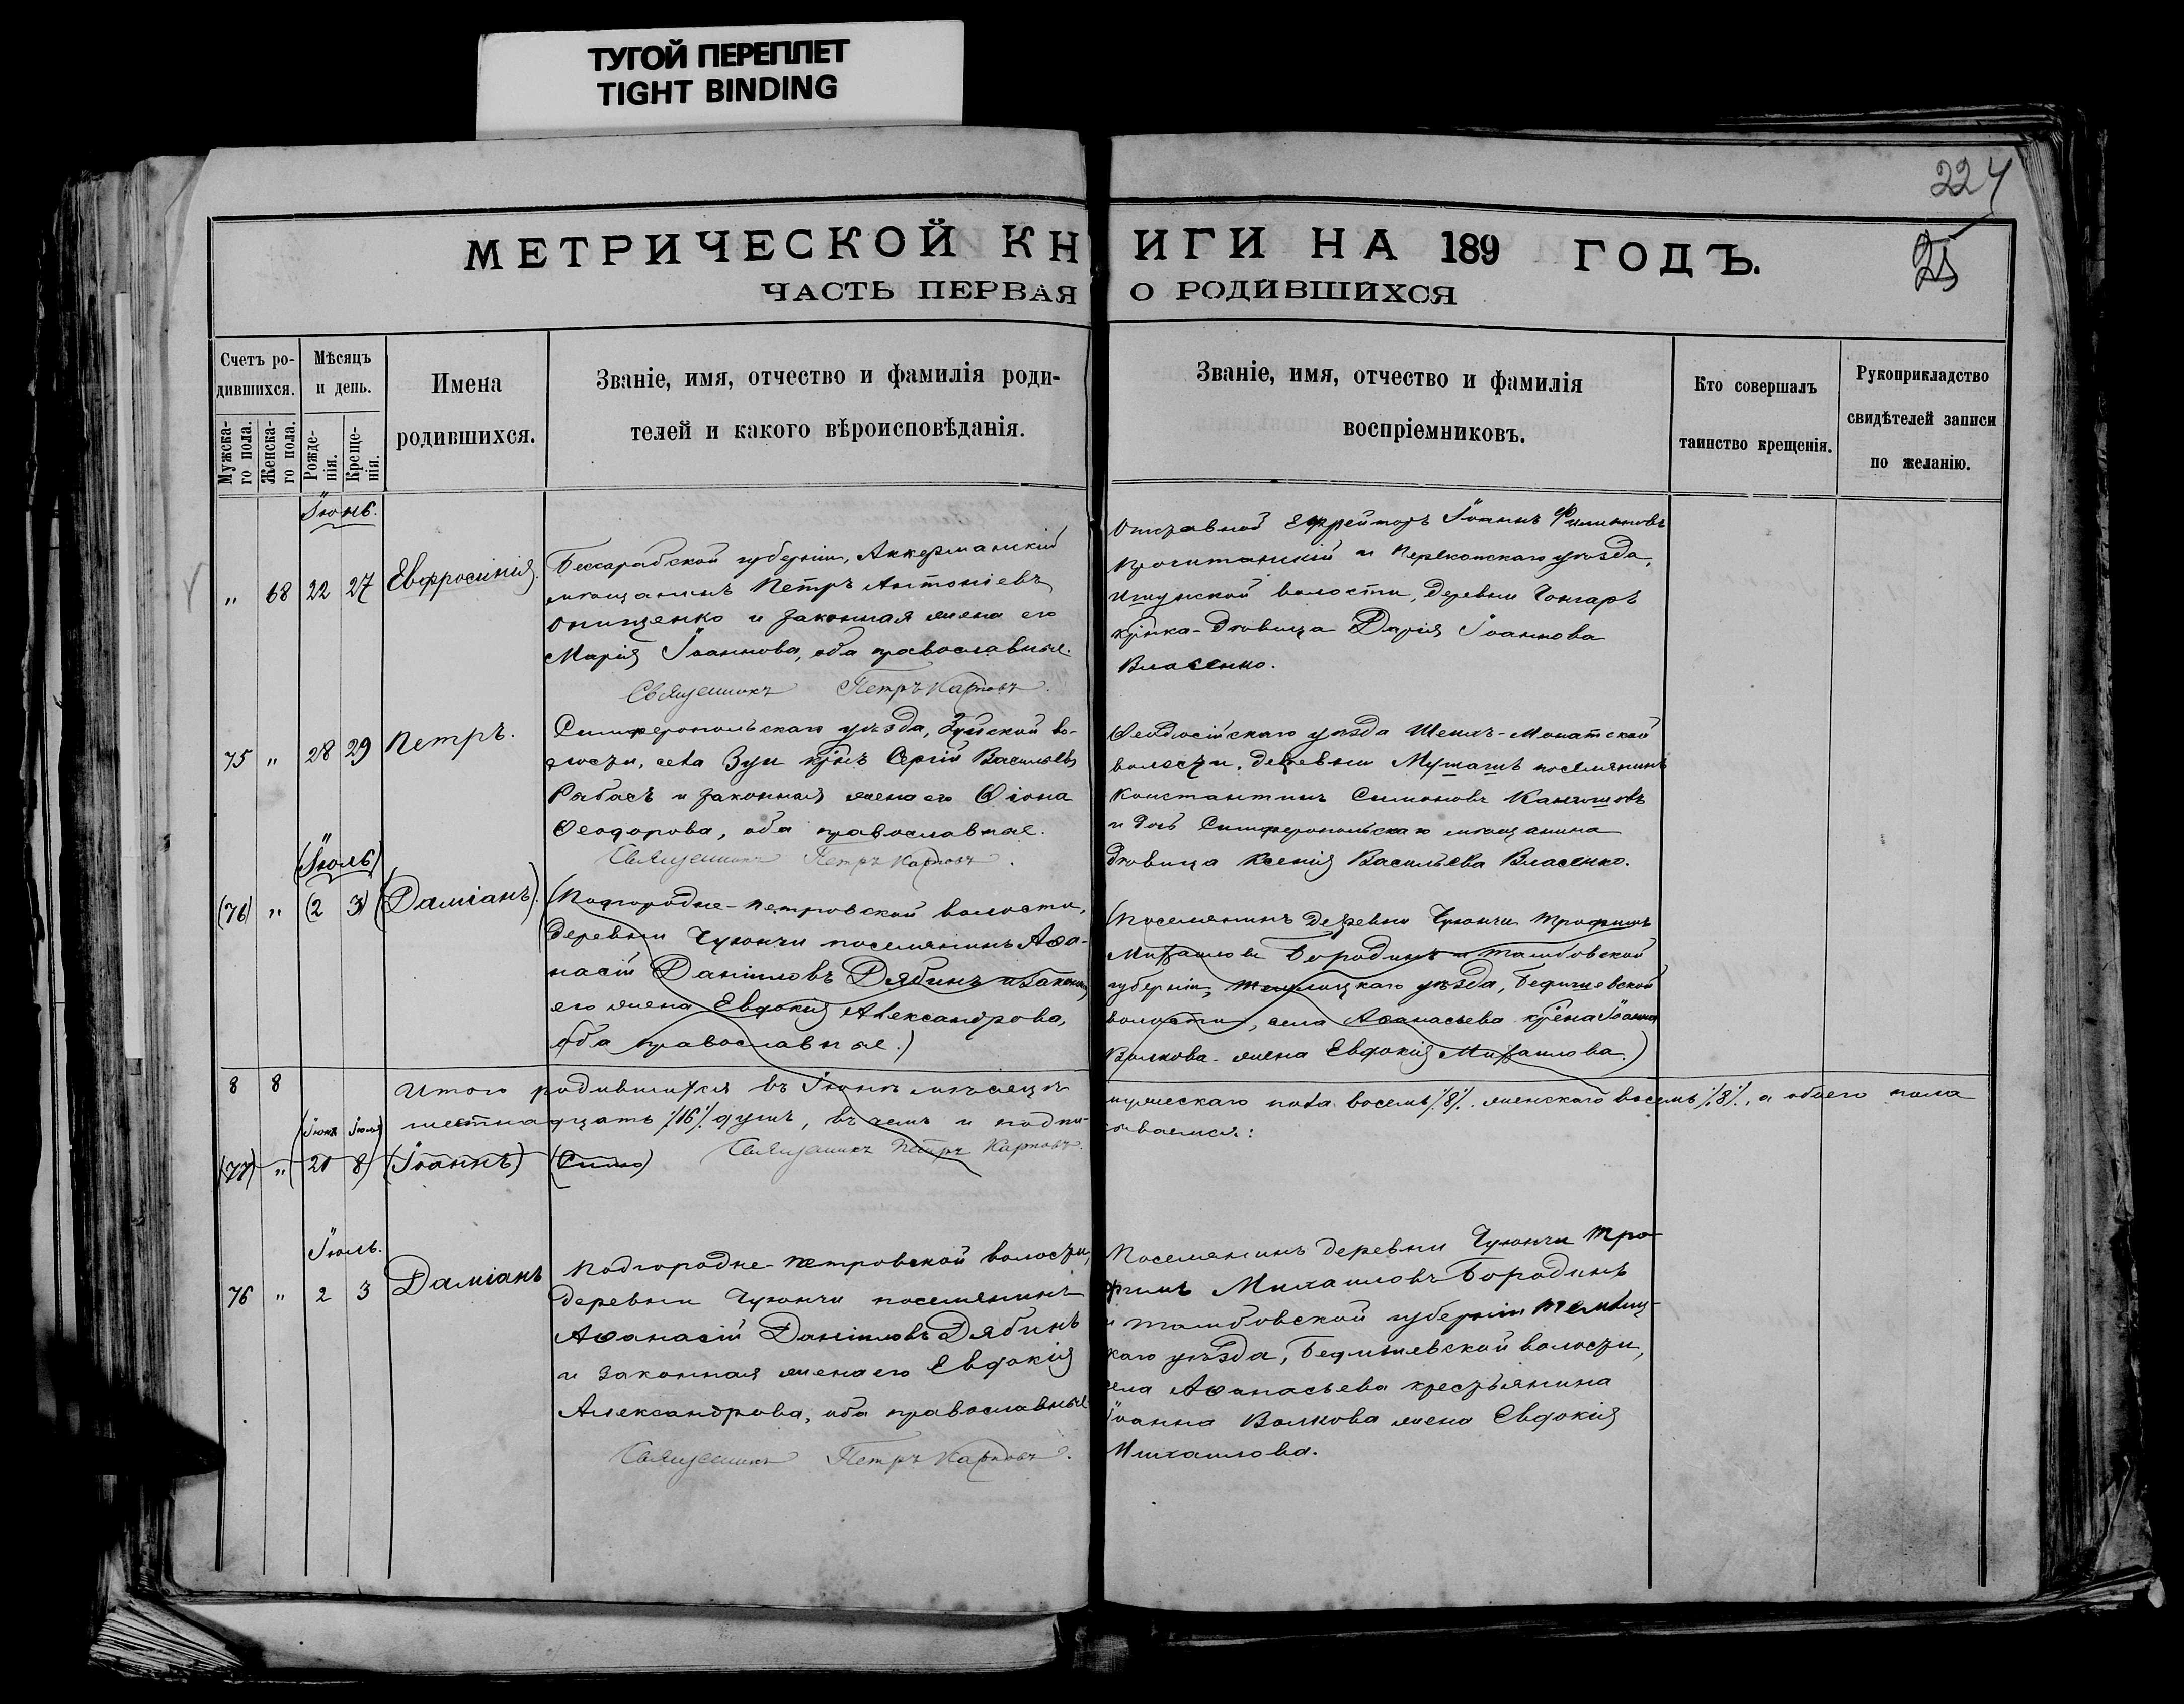 ТУГОЙ ПЕРЕПЛЕТ
TIGHT BINDING
224
25
МЕТРИЧЕСКОЙ КНИГИ НА 189 ГОДЪ.
ЧАСТЬ ПЕРВАЯ О РОДИВШИХСЯ
Счетъ ро-
дившихся.
Мужска-
го пола.
Женска-
го пола.
Мѣсяцъ
и день.
Рожде-
нія.
Креще-
нія.
Имена
родившихся.
Званіе, имя, отчество и фамилія роди-
телей и какого вѣроисповѣданія.
Званіе, имя, отчество и фамилія
воспріемниковъ.
Кто совершалъ
таинство крещенія.
Рукоприкладство
свидѣтелей записи
по желанію.
Іюнь.
„ 68 22 27 Евфросинія.
Бессарабской губерніи, Аккерманскій
мѣщанинъ Петръ Антоніевъ
Онищенко и законная жена его
Марія Іоаннова, оба православные.
Священникъ Петръ Карповъ.
Отставной Ефрейторъ Іоаннъ Филипповъ
и Перекопскаго уѣзда,
Ишунской волости, деревни Чонгаръ
крѣнка-дѣвица Дарія Іоаннова
Власенко.
75 „ 28 29 Петръ.
Симферопольскаго уѣзда, Зуйской во-
лости, села Зуи крнъ Сергій Васильевъ
Рябасъ и законная жена его Фіона
Феодорова, оба православные.
Священникъ Петръ Карповъ.
Феодосійскаго уѣзда Шейхъ-Монакской
волости, деревни поселянинъ
Константинъ Симоновъ
и дочь Симферопольскаго мѣщанина
дѣвица Ксенія Васильева Власенко.
(Іюль)
(76) „ (2 3) (Даміанъ).
(Подгородне-Петровской волости,
деревни Чуюнчи поселянинъ Афа-
насій Даніиловъ Дябинъ и законн
его жена Евдокія Александрова,
оба православные.)
(Поселянинъ деревни Чуюнчи Трофимъ
Михаиловъ Бородинъ и Тамбовской
губерніи, уѣзда,
волости, села Афанасьева крѣна Іоанна
Волкова жена Евдокія Михаилова.)
8 8 Итого родившихся въ Іюнѣ мѣсяцѣ мужескаго пола восемь /8/. женскаго восемь /8/, а обоего пола
шестнадцать /16/ душъ, въ чемъ и подпи-
сываемся:
Священникъ Петръ Карповъ.
(Іюня Іюля)
(77) „ 21 8) (Іоаннъ)
Іюль.
76 „ 2 3 Даміанъ
Подгородне-Петровской волости,
деревни Чуюнчи поселянинъ
Афанасій Даніиловъ Дябинъ
и законная жена его Евдокія
Александрова, оба православные
Священникъ Петръ Карповъ.
Поселянинъ деревни Чуюнчи Тро-
фимъ Михаиловъ Бородинъ
и Тамбовской губерніи
каго уѣзда, волости,
села Афанасьева крестьянина
Іоанна Волкова жена Евдокія
Михаилова.